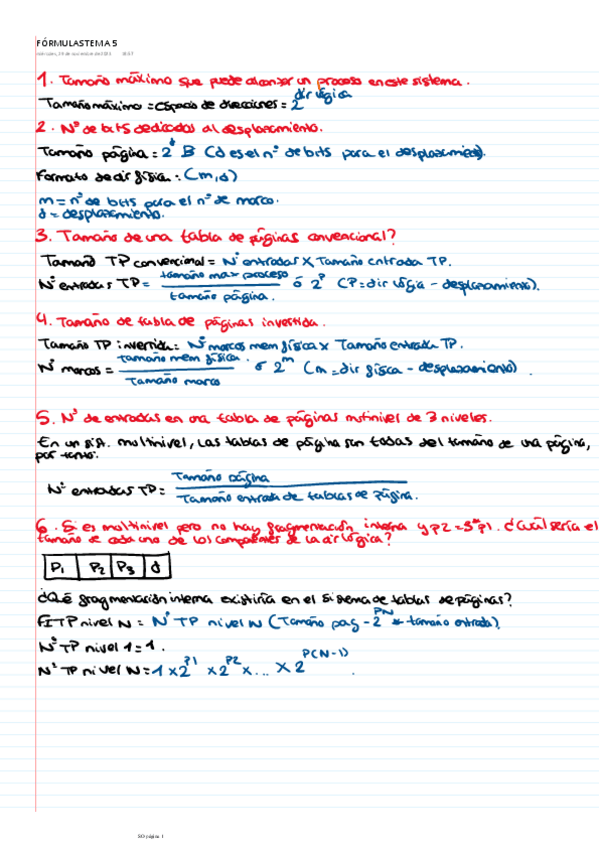 FÓRMULAS TEMA 5
miércoles, 24 de noviembre de 2021 18:57
1. Tamaño máximo que puede alcanzar un proceso en este sistema.
Tamaño máximo = espacio de direcciones = 2^dir lógica
2. Nº de bits dedicados al desplazamiento.
Tamaño página = 2^d B (d es el nº de bits para el desplazamiento).
Formato de dir física: (m,d)
m = nº de bits para el nº de marco.
d = desplazamiento.
3. Tamaño de una tabla de páginas convencional?
Tamaño TP convencional = Nº entradas x Tamaño entrada TP.
Nº entradas TP = tamaño max proceso / tamaño página. ó 2^P (P = dir lógia - desplazamiento).
4. Tamaño de tabla de páginas invertida.
Tamaño TP invertida: Nº marcos mem física x Tamaño entrada TP.
Nº marcos = tamaño mem física. / Tamaño marco ó 2^m (m = dir física - desplazamiento).
5. Nº de entradas en una tabla de páginas mutinivel de 3 niveles.
En un multinivel, las tablas de página son todas del tamaño de una página,
por tanto:
Nº entradas TP = Tamaño página / Tamaño entrada de tablas de página.
6. Si es multinivel pero no hay fragmentación interna y p2 = 3*p1. ¿Cuál sería el
tamaño de cada uno de los componentes de la dir lógica?
P1 P2 P3 d
¿Qué fragmentación interna existiría en el sistema de tablas de páginas?
FITP nivel N = Nº TP nivel N (Tamaño pag - 2^PN * tamaño entrada).
Nº TP nivel 1 = 1.
Nº TP nivel N = 1 x 2^P1 x 2^P2 x ... x 2^P(N-1)
SO página 1